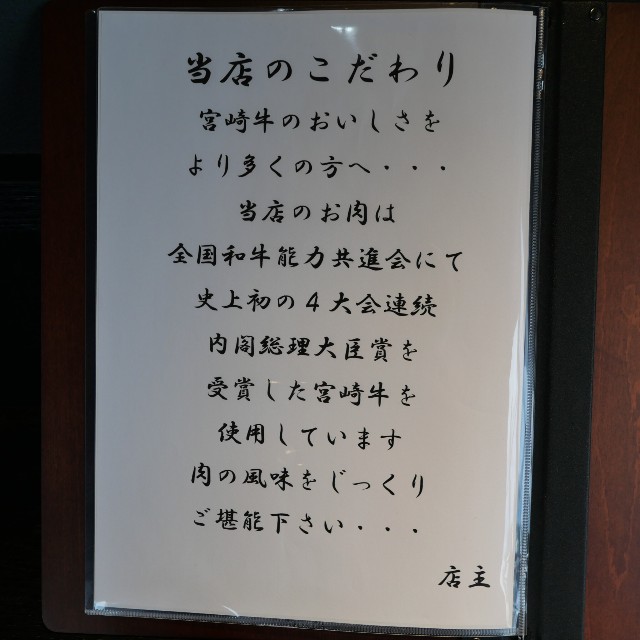 当店のこだわり
宮崎牛のおいしさを
より多くの方へ・・・
当店のお肉は
全国和牛能力共進会にて
史上初の４大会連続
内閣総理大臣賞を
受賞した宮崎牛を
使用しています
肉の風味をじっくり
ご堪能下さい・・・
店主